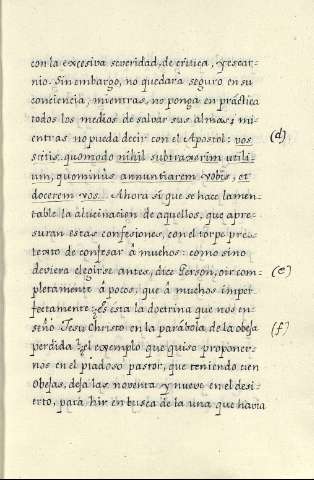 con la excesiva severidad, de critica, y escar-
nio. Sin embargo, no quedará seguro en su
conciencia, mientras, no ponga en práctica
todos los medios de salvar sus almas: mi-
entras no pueda decir con el Apostol: vos (d)
scitis quomodo nihil subtraxerim utili-
um, quominùs annuntiarem vobis, et
docerem vos. Ahora sí que se hace lamen-
table la alucinacion de aquellos, que apre-
suran estas confesiones, con el torpe pre-
texto de confesar à muchos: como si no
deviera elegirse antes, dice Gerson, oir com- (e)
pletamente à pocos, que à muchos imper-
fectamente. ¿Es ésta la doctrina que nos en-
señó Jesu Christo en la parábola, de la obeja (f)
perdida? ¿el exemplo que quiso proponer-
nos en el piadoso pastor, que teniendo cien
obejas, deja las noventa y nueve en el desi-
erto, para hir en busca de la una que havia